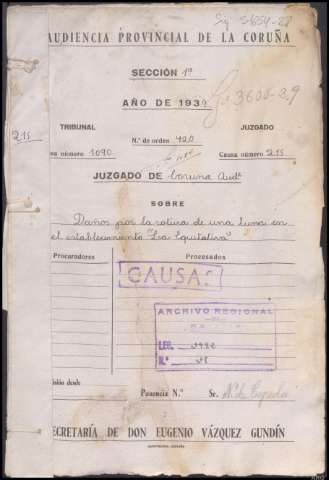 AUDIENCIA PROVINCIAL DE LA CORUÑA
SECCIÓN 1ª
AÑO DE 1939
3606-29
TRIBUNAL
JUZGADO
215
N.º de orden 420
sa número 1090
Causa número 215
JUZGADO DE Coruna Audª
SOBRE
Daños por la rotura de una luna en
el establecimiento "La Equitativa"
Procuradores
Procesados
CAUSAS
ARCHIVO REGIONAL
LEG.
N.º
isión desde
Ponencia N.º
Sr.
ECRETARÍA DE DON EUGENIO VÁZQUEZ GUNDÍN